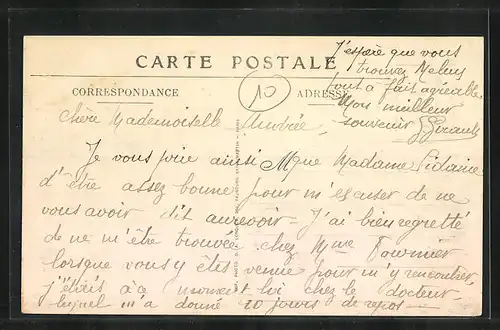 CARTE POSTALE
J'espère que vous
trouvez Melun
tout a fait agréable.
Mon meilleur
souvenir
CORRESPONDANCE
10
ADRESSE
Chère Mademoiselle
Je vous prie ainsi que Madame
d'être assez bonne pour m'excuser de ne
vous avoir dit aurevoir - J'ai bien regretté
de ne m'être trouvée chez Mme Fournier
lorsque vous y êtes venue pour m'y rencontrer,
j'étais à ce moment là chez le docteur
lequel m'a donné 10 jours de repos -